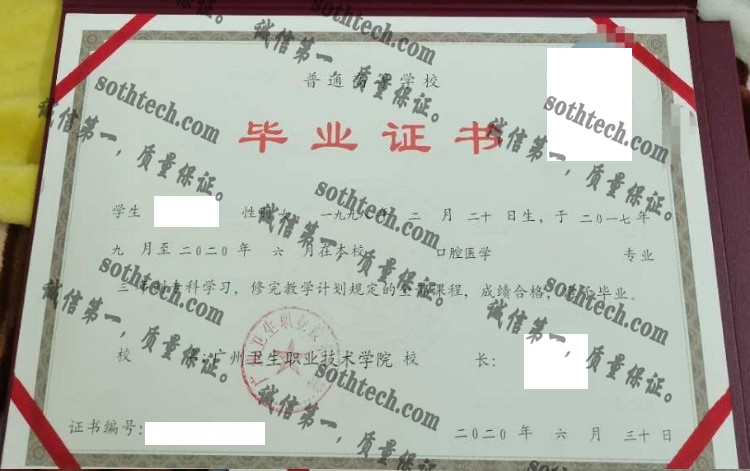 普通高等学校
毕业证书
学生 性别女，一九九八年 二 月 二十 日生，于 二〇一七年
九 月至 二〇二〇 年 六 月在本校 口腔医学 专业
三年制专科学习，修完教学计划规定的全部课程，成绩合格，准予毕业。
校 名：广州卫生职业技术学院 校 长：
证书编号：
二〇二〇 年 六 月 三十 日
sothtech.com
诚信第一，质量保证。
sothtech.com
诚信第一，质量保证。
sothtech.com
诚信第一，质量保证。
sothtech.com
诚信第一，质量保证。
sothtech.com
诚信第一，质量保证。
sothtech.com
诚信第一，质量保证。
sothtech.com
诚信第一，质量保证。
sothtech.com
诚信第一，质量保证。